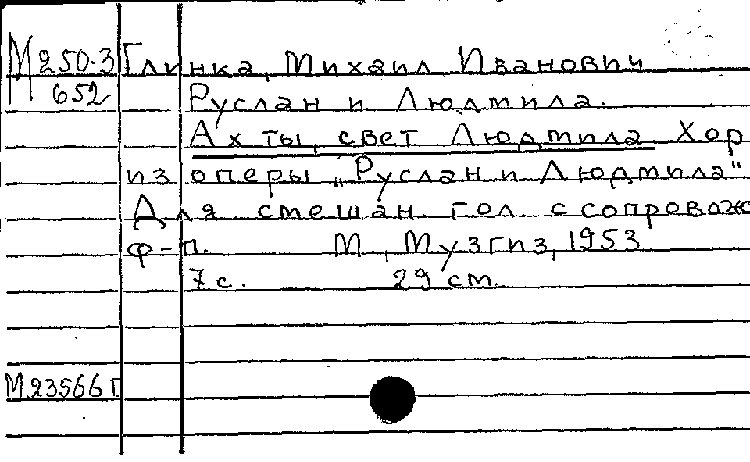 М250.3 Глинка, Михаил Иванович
652 Руслан и Людмила.
Ах ты, свет Людмила. Хор
из оперы „Руслан и Людмила"
Для смешан. гол. с сопровожд
ф-п. М., Музгиз, 1953
7 с. 29 см.
М23566 г